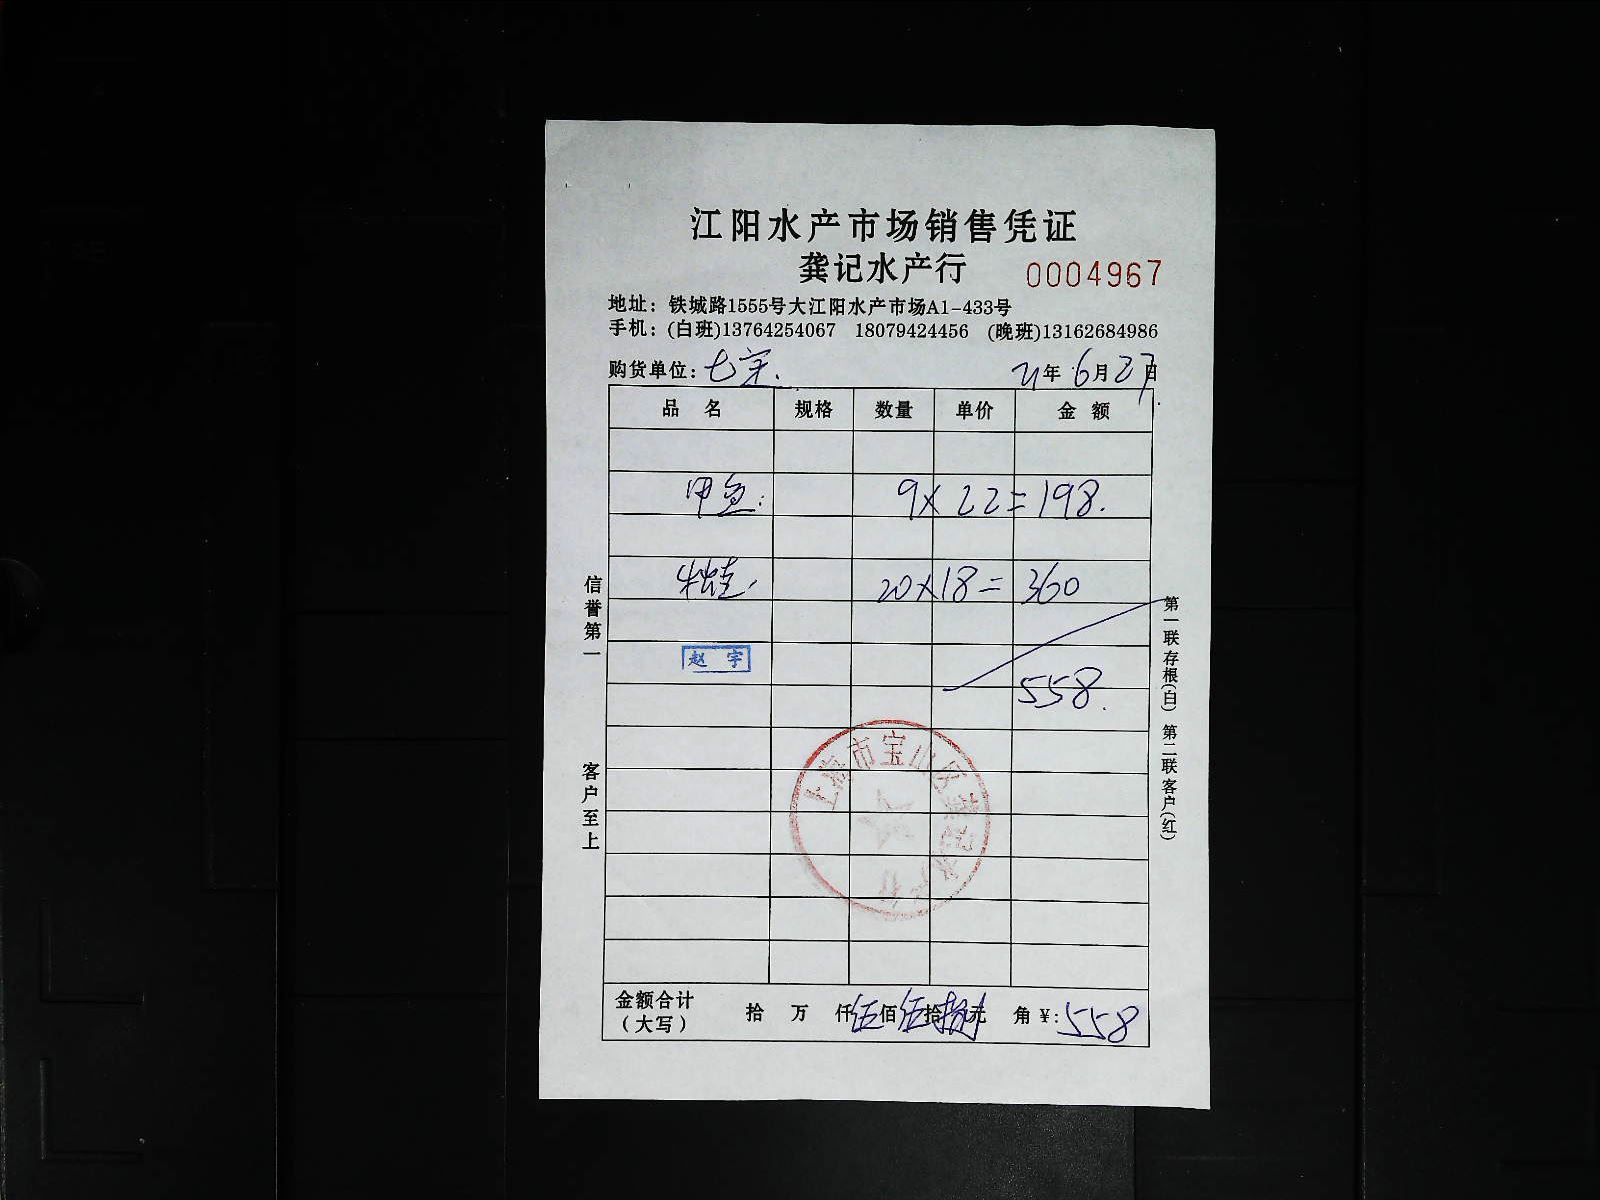 江阳水产市场销售凭证
龚记水产行 0004967
地址：铁城路1555号大江阳水产市场A1-433号
手机：(白班)13764254067 18079424456 (晚班)13162684986
购货单位：七宝. 21年6月27日
品 名 规格 数量 单价 金 额
甲鱼: 9×22=198.
牛蛙. 20×18=360
赵 宇
558.
上海市宝山区龚记水产行
金额合计（大写） 拾 万 仟伍佰伍拾捌元 角￥:558
信誉第一 客户至上
第一联存根(白) 第二联客户(红)